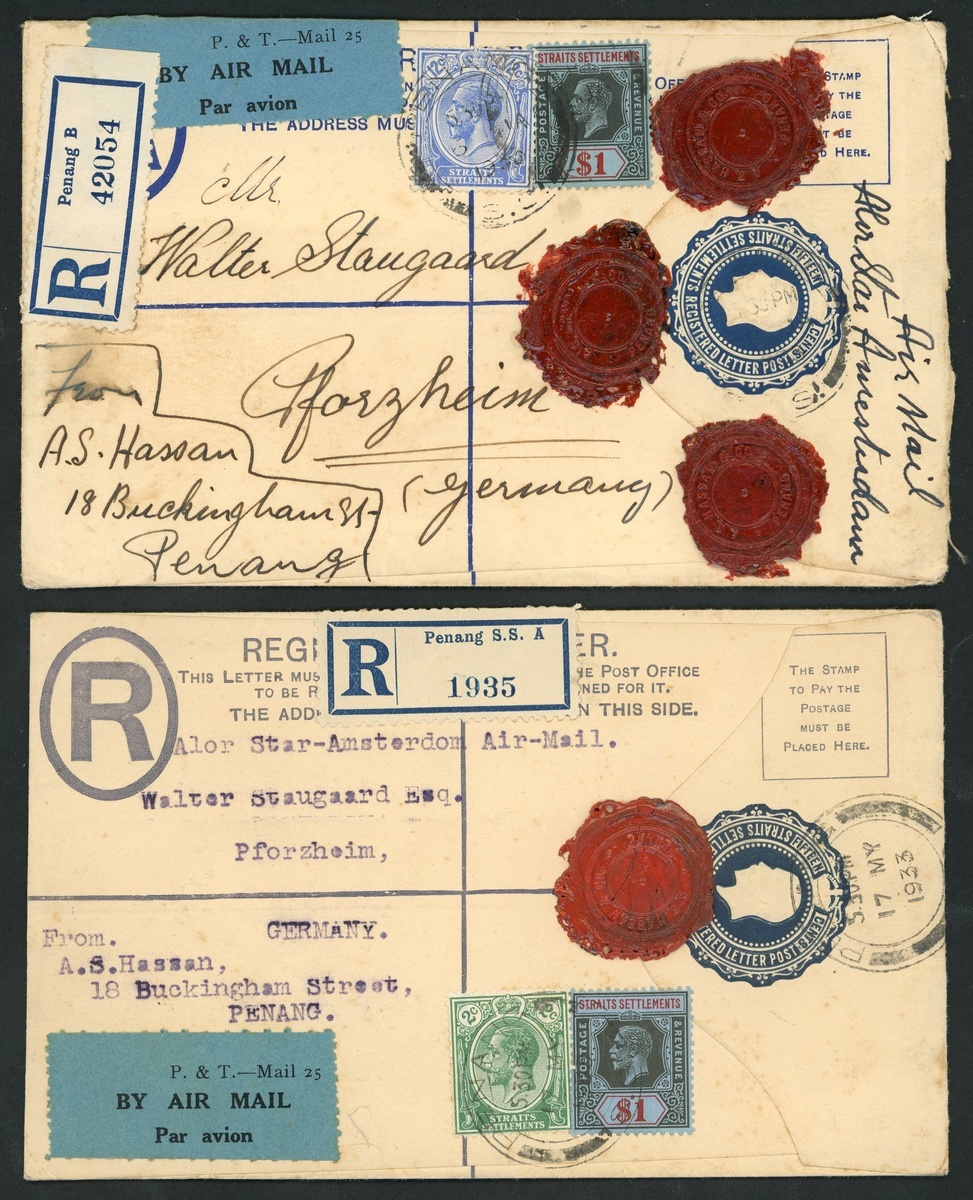 P. & T.—Mail 25
BY AIR MAIL
Par avion
THE ADDRESS MUS
STAMP
Y THE
BE
HERE.
Penang B
42054
R
STRAITS SETTLEMENTS
STRAITS SETTLEMENTS
POSTAGE & REVENUE
$1
Mr.
Walter Staugaard
Pforzheim
(Germany)
From
A.S. Hassan
18 Buckingham St-
Penang
Air Mail
Alor Star Amesterdam
STRAITS SETTLEMENTS
FIFTEEN CENTS
REGISTERED LETTER POSTAGE
30 PM
R
REGI
ER.
THIS LETTER MUS
HE POST OFFICE
TO BE R
NED FOR IT.
THE ADD
N THIS SIDE.
R
Penang S.S. A
1935
THE STAMP
TO PAY THE
POSTAGE
MUST BE
PLACED HERE.
Alor Star-Amsterdom Air-Mail.
Walter Staugaard Esq.
Pforzheim,
GERMANY.
From.
A.S.Hassan,
18 Buckingham Street,
PENANG.
STRAITS SETTLEMENTS
FIFTEEN CENTS
TERED LETTER POSTAGE
5.30 PM
17 MY
1933
P. & T.—Mail 25
BY AIR MAIL
Par avion
2c
2c
STRAITS
SETTLEMENTS
STRAITS SETTLEMENTS
POSTAGE & REVENUE
$1